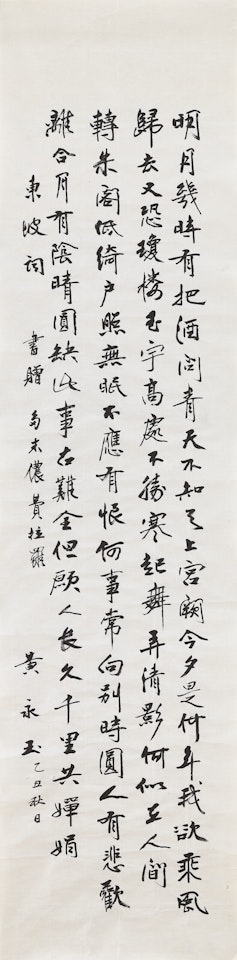 明月幾時有把酒問青天不知天上宮闕今夕是何年我欲乘風
歸去又恐瓊樓玉宇高處不勝寒起舞弄清影何似在人間
轉朱閣低綺戶照無眠不應有恨何事常向別時圓人有悲歡
離合月有陰晴圓缺此事古難全但願人長久千里共嬋娟
東坡詞 書贈 末儂費拉羅 黃永玉 乙丑秋日